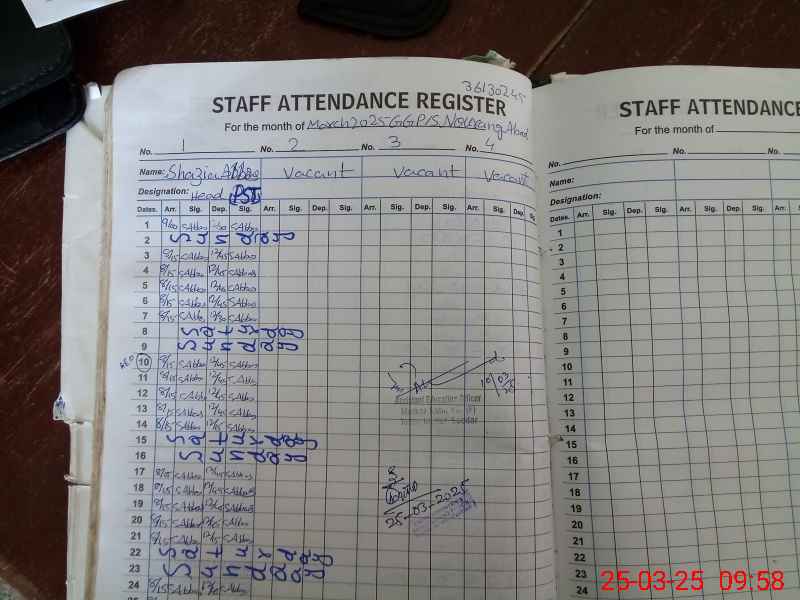 36130245
STAFF ATTENDANCE REGISTER
For the month of March 2025 GGP/S
No. 1 No. 2 No. 3 No. 4
Name: Shazia Abbas Vacant Vacant Vacant
Designation: Head PST
Dates. Arr. Sig. Dep. Sig. Arr. Sig. Dep. Sig. Arr. Sig. Dep. Sig. Arr. Sig. Dep. Sig
1 9/00 SAbbas
2 Sunday
3 8/15 SAbbas 12/45 SAbbas
4 8/15 SAbbas 12/45 SAbbas
5 8/15 SAbbas 12/45 SAbbas
6 8/15 SAbbas 12/45 SAbbas
7 8/15 SAbbas 12/30 SAbbas
8 Saturday
9 Sunday
10 8/15 SAbbas 12/45 SAbbas
11 8/15 SAbbas 12/45 SAbbas
12 8/15 SAbbas 12/45 SAbbas
13 8/15 SAbbas 12/45 SAbbas
14 8/15 SAbbas 12/45 SAbbas
15 Saturday
16 Sunday
17 8/15 SAbbas 12/45 SAbbas
18 8/15 SAbbas 12/45 SAbbas
19 8/15 SAbbas 12/45 SAbbas
20 8/15 SAbbas 12/45 SAbbas
21 8/15 SAbbas 12/45 SAbbas
22 Saturday
23 Sunday
24 8/15 SAbbas 12/45 SAbbas
10/03/25
Assistant Education Officer
25-03-2025
STAFF ATTENDANCE
For the month of
No. No.
Name:
Designation:
Dates. Arr. Sig. Dep. Sig. Arr. Sig. Dep. Sig.
1
2
3
4
5
6
7
8
9
10
11
12
13
14
15
16
17
18
19
20
21
22
23
24
25-03-25 09:58